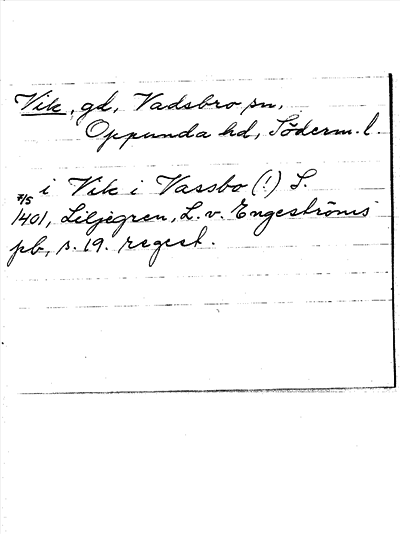 Vik, gd, Vadsbro sn,
Oppunda hd, Söderm. l.
i Vik i Vassbo (!) S.
7/5 1401, Liljegren, L. v. Engeströms
pb, s. 19. regest.